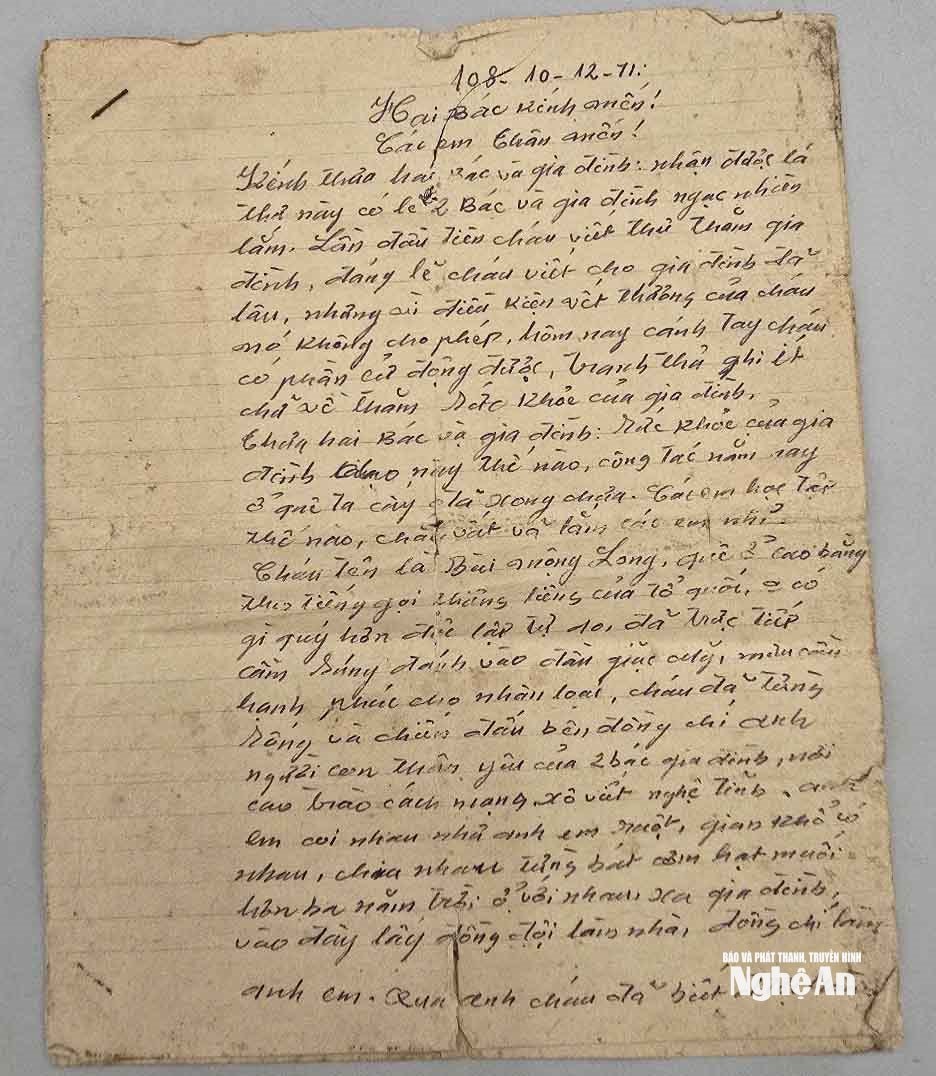 108- 10-12-71:
Hai Bác kính mến!
Các em thân mến!
Kính thưa hai Bác và gia đình: nhận được lá
thư này có lẽ 2 Bác và gia đình ngạc nhiên
lắm. Lần đầu tiên cháu viết thư thăm gia
đình, đáng lẽ cháu viết cho gia đình đã
lâu, nhưng vì điều kiện vết thương của cháu
nó không cho phép, hôm nay cánh tay cháu
có phần cử động được, tranh thủ ghi ít
chữ về thăm sức khỏe của gia đình.
Thưa hai Bác và gia đình: sức khỏe của gia
đình dạo này thế nào, công tác năm nay
ở quê ta cày đã xong chưa. Các em học tập
thế nào, chắc vất vả lắm các em nhỉ.
Cháu tên là Bùi Mộng Long, quê ở cao bằng
theo tiếng gọi thiêng liêng của tổ quốc, o có
gì quý hơn độc lập tự do, đã trực tiếp
cầm súng đánh vào đầu giặc Mỹ, mưu cầu
hạnh phúc cho nhân loại, cháu đã từng
sống và chiến đấu bên đồng chí anh
người con thân yêu của 2 bác gia đình, nơi
cao trào cách mạng xô viết nghệ tĩnh. anh
em coi nhau như anh em ruột, gian khổ có
nhau, chia nhau từng bát cơm hạt muối
hơn ba năm trời ở với nhau, xa gia đình,
vào đây lấy đồng đội làm nhà, đồng chí làm
anh em. Qua anh cháu đã biết
BÁO VÀ PHÁT THANH, TRUYỀN HÌNH
Nghệ An